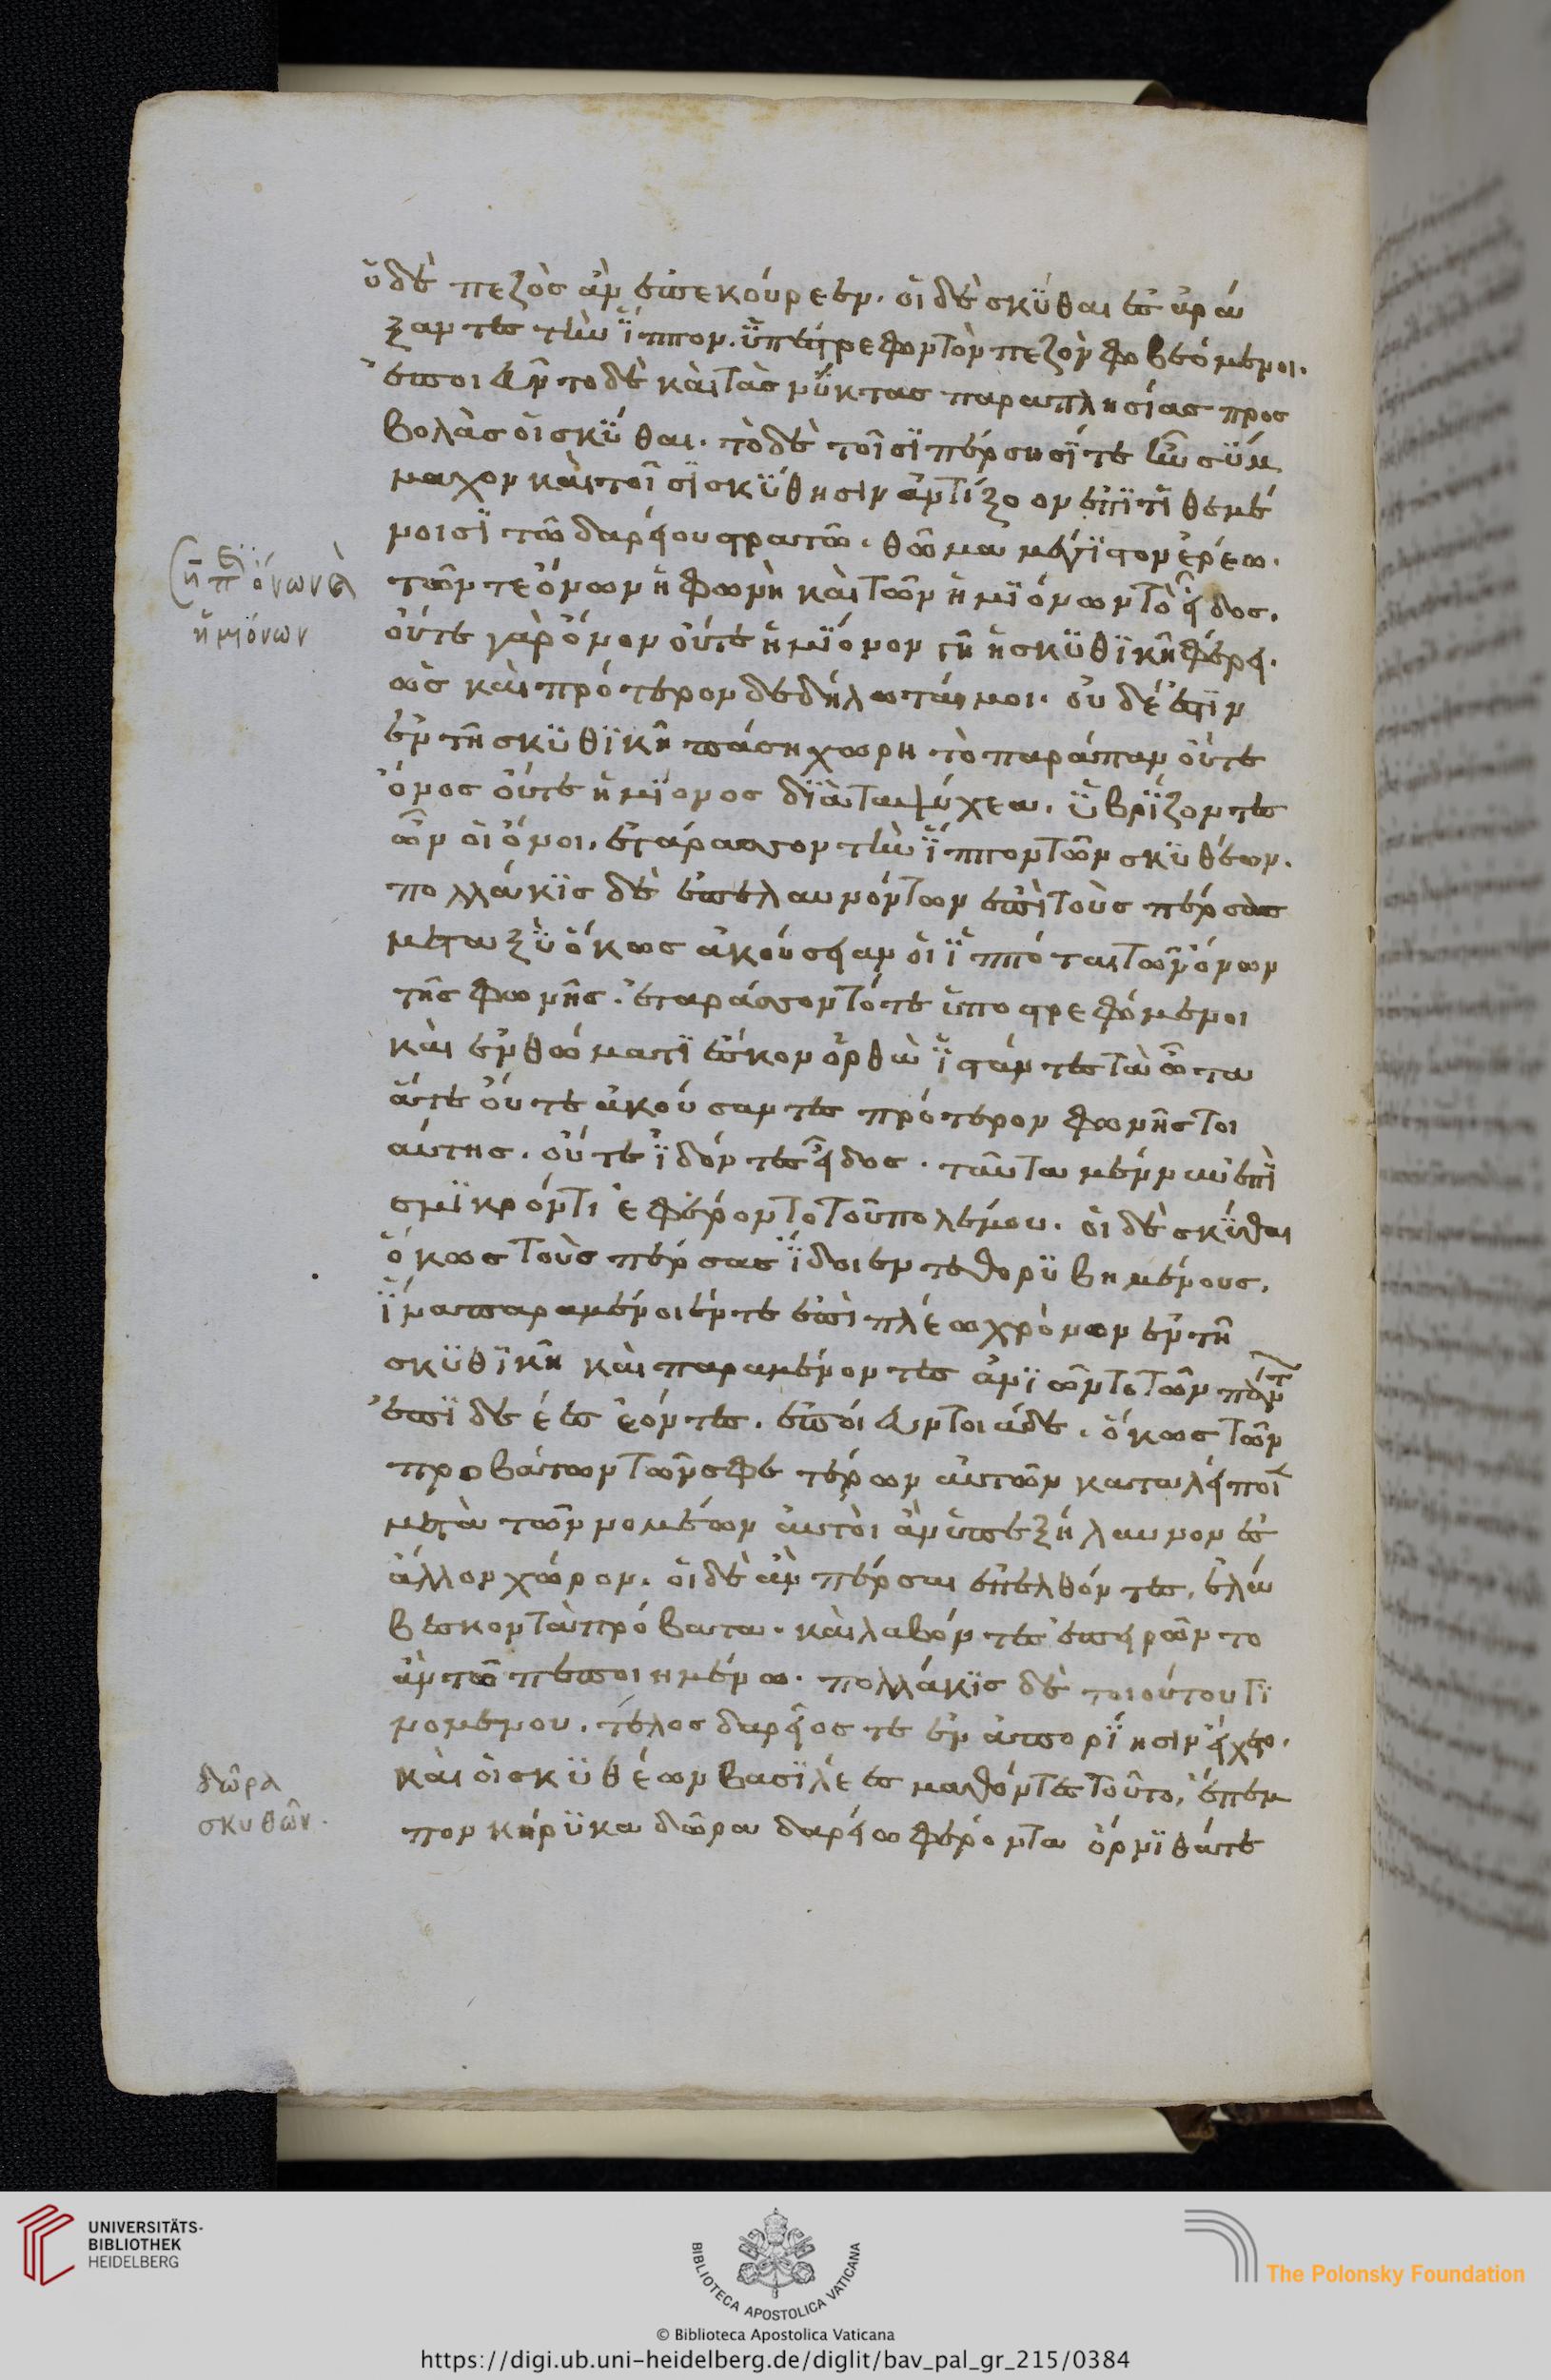 ὁ δὲ πεζὸς ἀν ἐπεκούρεεν. οἱ δὲ σκύθαι ἐσ ἀρά
ξαντες τὴν ἵππον. ὑπέστρεφον τὸν πεζὸν φοβεόμενοι.
ἐποιεῦντο δὲ καὶ τὰς νύκτας παραπλησίας προσ
βολὰς οἱ σκύθαι. τὸ δὲ τοῖσι πέρσησί τε ἦν σύμ
μαχον καὶ τοῖσι σκύθησιν ἀντίξοον ἐπιτιθεμέ
νοισι τῶ δαρείου στρατῶ. θῶμα μέγιστον ἐρέω.
τῶν τε ὄνων ἡ φωνὴ καὶ τῶν ἡμιόνων τὸ εἶδος.
οὔτε γὰρ ὄνον οὔτε ἡμίονον γῆ ἡ σκυθικὴ φέρει.
ὡς καὶ πρότερον δεδήλωταί μοι. οὐδέ ἐστιν
ἐν τῆ σκυθικῆ πάση χώρη τὸ παράπαν οὔτε
ὄνος οὔτε ἡμίονος διὰ τὰ ψύχεα. ὑβρίζοντες
ὦν οἱ ὄνοι. ἐτάρασσον τὴν ἵππον τῶν σκυθέων.
πολλάκις δὲ ἐπελαυνόντων ἐπὶ τοὺς πέρσας
μεταξὺ ὅκως ἀκούσειαν οἱ ἱππόται τῶν ὄνων
τῆς φωνῆς. ἐταράσσοντό τε ὑποστρεφόμενοι
καὶ ἐν θώματι ἔσκον ὀρθὰ ἱστάντες τὰ ὦτα
ἅτε οὔτε ἀκούσαντες πρότερον φωνῆς τοι
αύτης. οὔτε ἰδόντες εἶδος. ταῦτα μέν νυν ἐπὶ
σμικρόν τι ἐφέροντο τοῦ πολέμου. οἱ δὲ σκύθαι
ὅκως τοὺς πέρσας ἴδοιεν τεθορυβημένους.
ἵνα παραμένοιέν τε ἐπὶ πλέω χρόνον ἐν τῆ
σκυθικῆ καὶ παραμένοντες ἀνιῶντο τῶν πάντ
ἐπιδεέες ἐόντες. ἐποίευν τοιάδε. ὅκως τῶν
προβάτων τῶν σφετέρων αὐτῶν καταλείποι
μετὰ τῶν νομέων αὐτοὶ ἀν ὑπεξήλαυνον ἐς
ἄλλον χῶρον. οἱ δὲ ἀν πέρσαι ἐπελθόντες. ἐλά
βεσκον τὰ πρόβατα. καὶ λαβόντες ἐπηρῶντο
ἀν τῶ πεποιημένω. πολλάκις δὲ τοιούτου γι
νομένου. τέλος δαρεῖος τε ἐν ἀπορίησιν εἴχετο.
καὶ οἱ σκυθέων βασιλέες μαθόντες τοῦτο, ἔπεμ
πον κήρυκα δῶρα δαρείω φέροντα ὄρνιθά τε
ὄνων
ἡμιόνων
δῶρα
σκυθῶν.
UNIVERSITÄTS-
BIBLIOTHEK
HEIDELBERG
BIBLIOTECA APOSTOLICA VATICANA
The Polonsky Foundation
© Biblioteca Apostolica Vaticana
https://digi.ub.uni-heidelberg.de/diglit/bav_pal_gr_215/0384